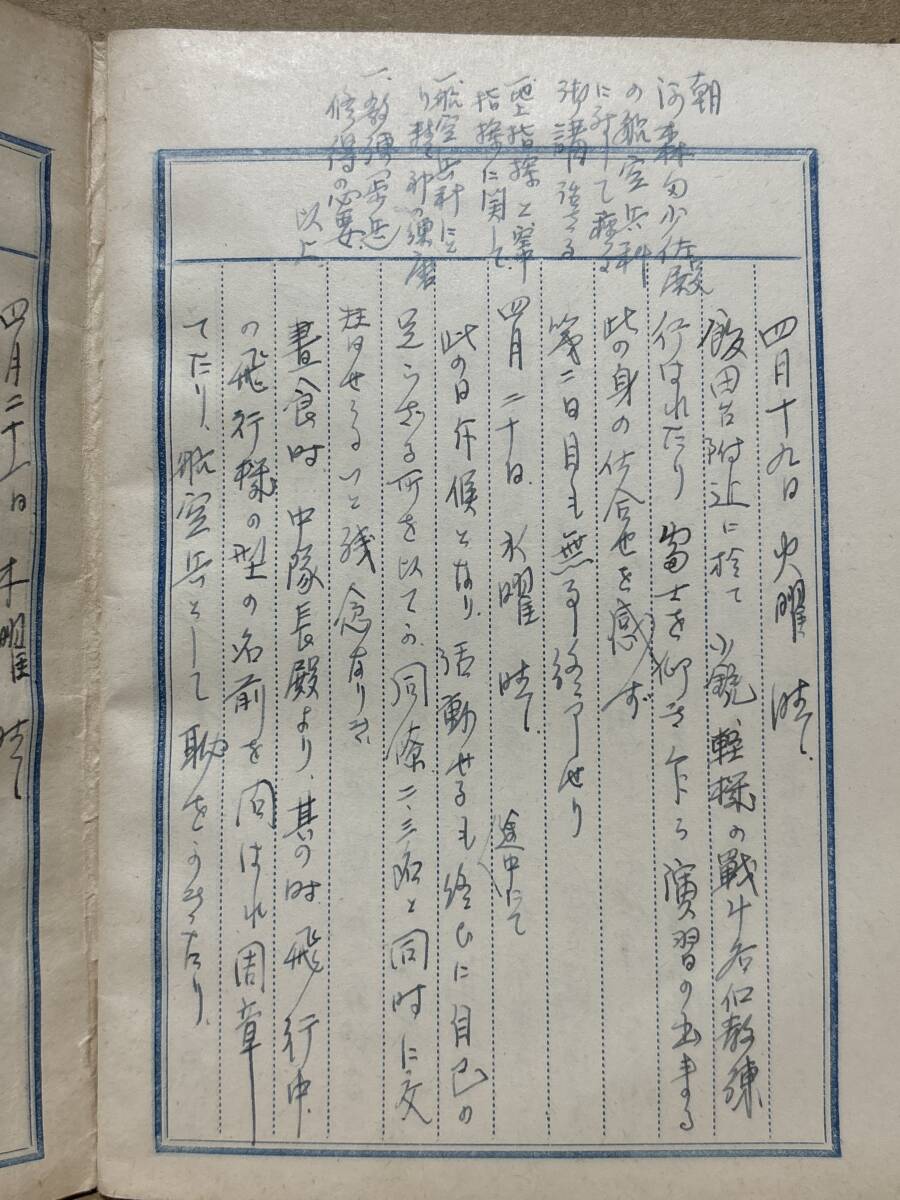 朝
河森勇少佐殿
の航空兵科
に於て
御講話さる
一、地上指揮と空中
指揮に関して
一、航空兵科に
り 神の練磨
一、教練 兵
修得の必要
以上
四月十九日 火曜 晴て
飯田台附近に於て 小銃、軽機の戦斗各個教練
行はれたり 富士を仰ぎ乍ら演習の出来る
此の身の仕合せを感ず
第二日目も無事終了せり
四月二十日 水曜 晴て 途中にて
此の日斥候となり、活動せるも終ひに自己の
足らざる所を以てか同僚二、三名と同時に
せるいと残念なりき
昼食時 中隊長殿より、其の時、飛行中
の飛行機の型の名前を問はれ周章
てたり、航空兵として恥をかきたり、
四月二十一日 木曜 晴て